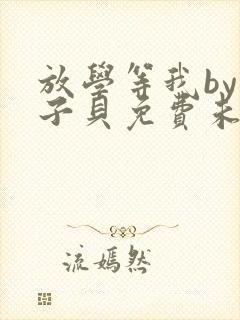 放學等我by
子貝免費未
流嫣然